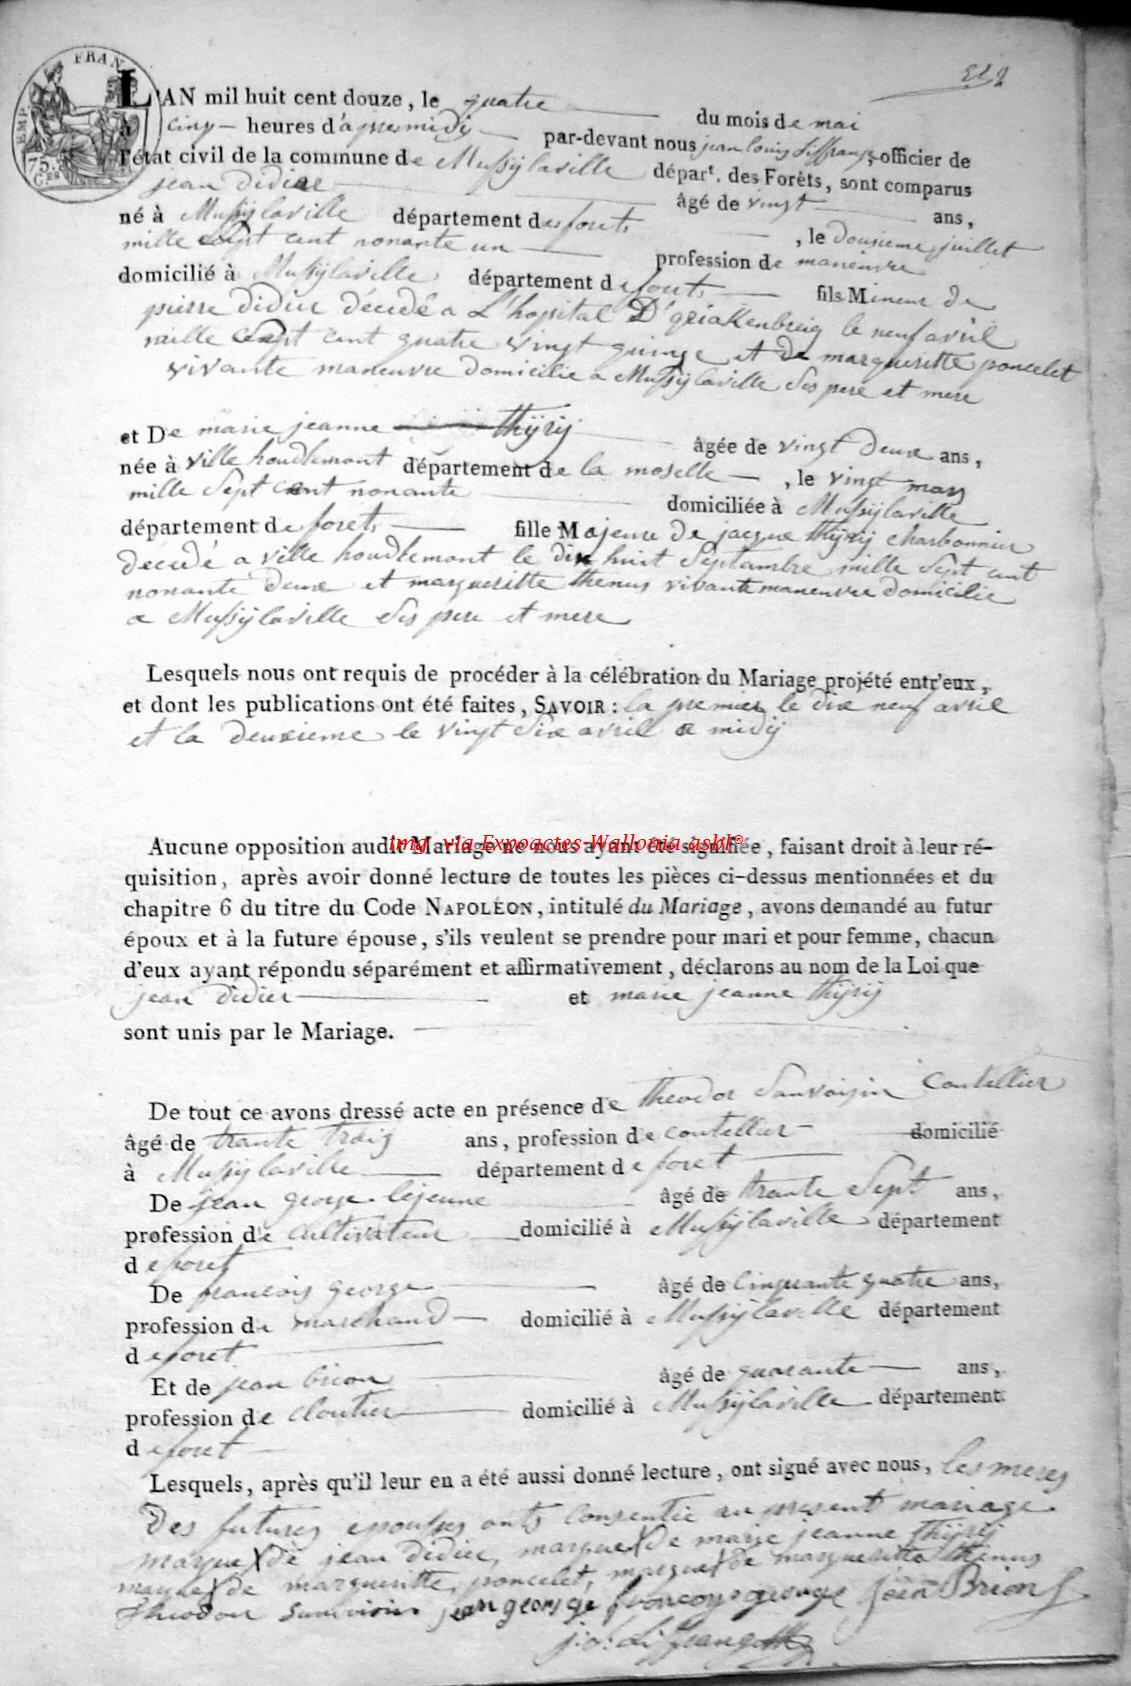 FRAN
EMP.
75.
C.ES
L'AN mil huit cent douze, le quatre du mois de mai
à cinq heures d'apresmidÿ par-devant nous jean louis officier de
l'état civil de la commune de Mussÿlaville départ. des Forêts, sont comparus
jean didier âgé de vingt ans,
né à Mussÿlaville département des forets, le dousieme juillet
mille sept cent nonante un profession de maneuvre
domicilié à Mussÿlaville département de forets fils Mineur de
pierre didier décédé a L'hopital le neuf avril
mille sept cent quatre vingt quinze et de margueritte poncelet
vivante maneuvre domicilie a Mussÿlaville Ses pere et mere
et De marie jeanne thÿrÿ âgée de vingt deux ans,
née à ville houdlemont département de la moselle, le vingt mars
mille Sept cent nonante domiciliée à Mussÿlaville
département de forets fille Majeure de jacque thÿrÿ charbonnier
décédé a ville houdlemont le dix huit Septambre mille Sept cent
nonante deux et margueritte thenus vivante maneuvre domicilie
a Mussÿlaville Ses pere et mere
Lesquels nous ont requis de procéder à la célébration du Mariage projété entr'eux,
et dont les publications ont été faites, SAVOIR: la premier le dix neuf avril
et la deuxieme le vingt Six avril a midÿ
img via Expoactes-Wallonia asbl©
Aucune opposition audit Mariage ne nous ayant été signifiée, faisant droit à leur ré-
quisition, après avoir donné lecture de toutes les pièces ci-dessus mentionnées et du
chapitre 6 du titre du Code NAPOLÉON, intitulé du Mariage, avons demandé au futur
époux et à la future épouse, s'ils veulent se prendre pour mari et pour femme, chacun
d'eux ayant répondu séparément et affirmativement, déclarons au nom de la Loi que
jean didier et marie jeanne thÿrÿ
sont unis par le Mariage.
De tout ce avons dressé acte en présence de theodor Sauvoisin Coutellier
âgé de trante trois ans, profession de coutellier domicilié
à Mussÿlaville département de foret
De jean george lejeune âgé de trante Sept ans,
profession de cultivateur domicilié à Mussÿlaville département
de foret
De francois george âgé de Cinquante quatre ans,
profession de marchand domicilié à Mussÿlaville département
de foret
Et de jean brion âgé de quarante ans,
profession de cloutier domicilié à Mussÿlaville département
de foret
Lesquels, après qu'il leur en a été aussi donné lecture, ont signé avec nous, les meres
Des futures epousses onts consentie au present mariage
marque X de jean didier, marque X de marie jeanne thÿrÿ
marque X de margueritte poncelet, marque X de margueritte thenus
jean george francoy george Jean Brion